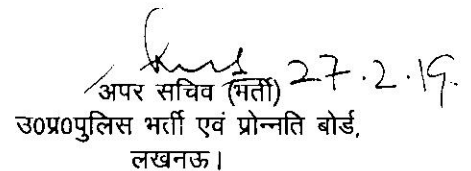 27.2.19.
अपर सचिव (भर्ती)
उ०प्र०पुलिस भर्ती एवं प्रोन्नति बोर्ड,
लखनऊ।